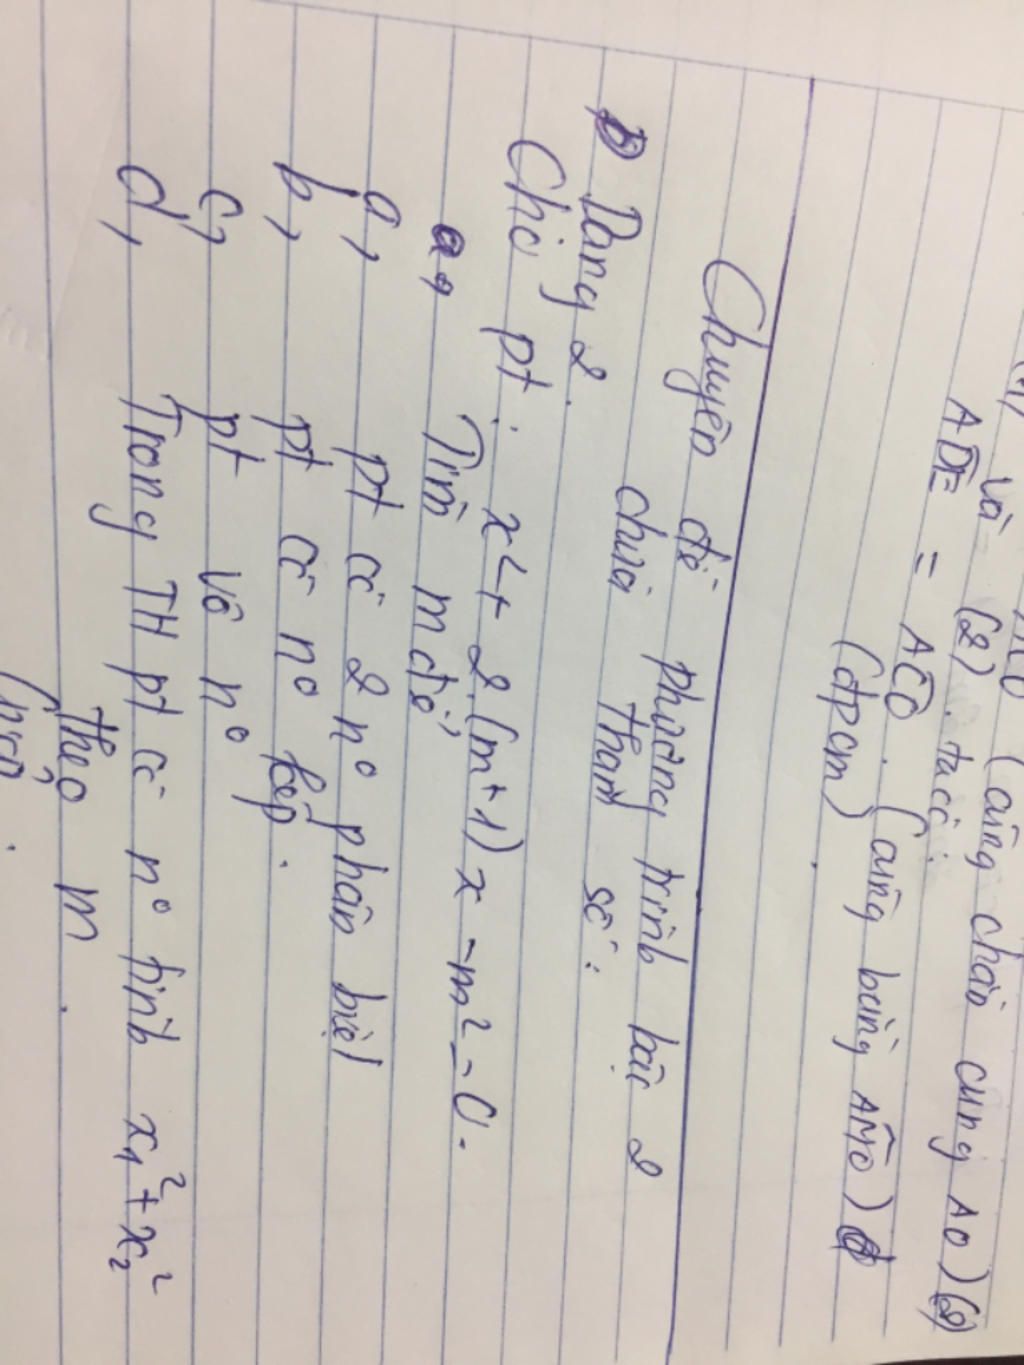 và (2). ta có:
ADE = ACO. (cùng bằng AMO)
(đpcm).
Chuyên đề phương trình bậc 2
chứa tham số:
Dạng 2.
Cho pt: x² + 2(m+1)x - m² = 0.
a, Tìm m để,
a, pt có 2 n° phân biệt
b, pt có n° kép.
c, pt vô n°
d, Trong TH pt có n° tính x₁² + x₂²
theo m.